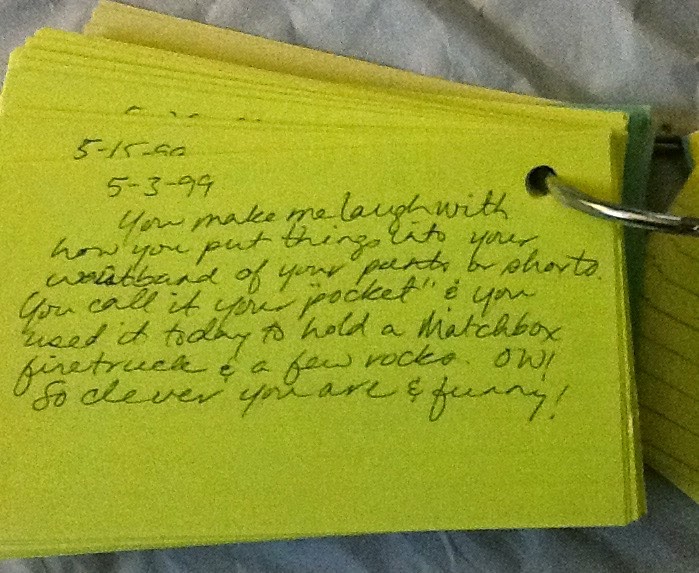 5-15-99
5-3-99
You make me laugh with
how you put things into your
waistband of your pants or shorts.
You call it your "pocket" & you
used it today to hold a Matchbox
firetruck & a few rocks. OW!
So clever you are & funny!